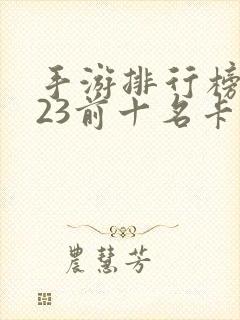 手游排行榜
23前十名卡
農慧芳